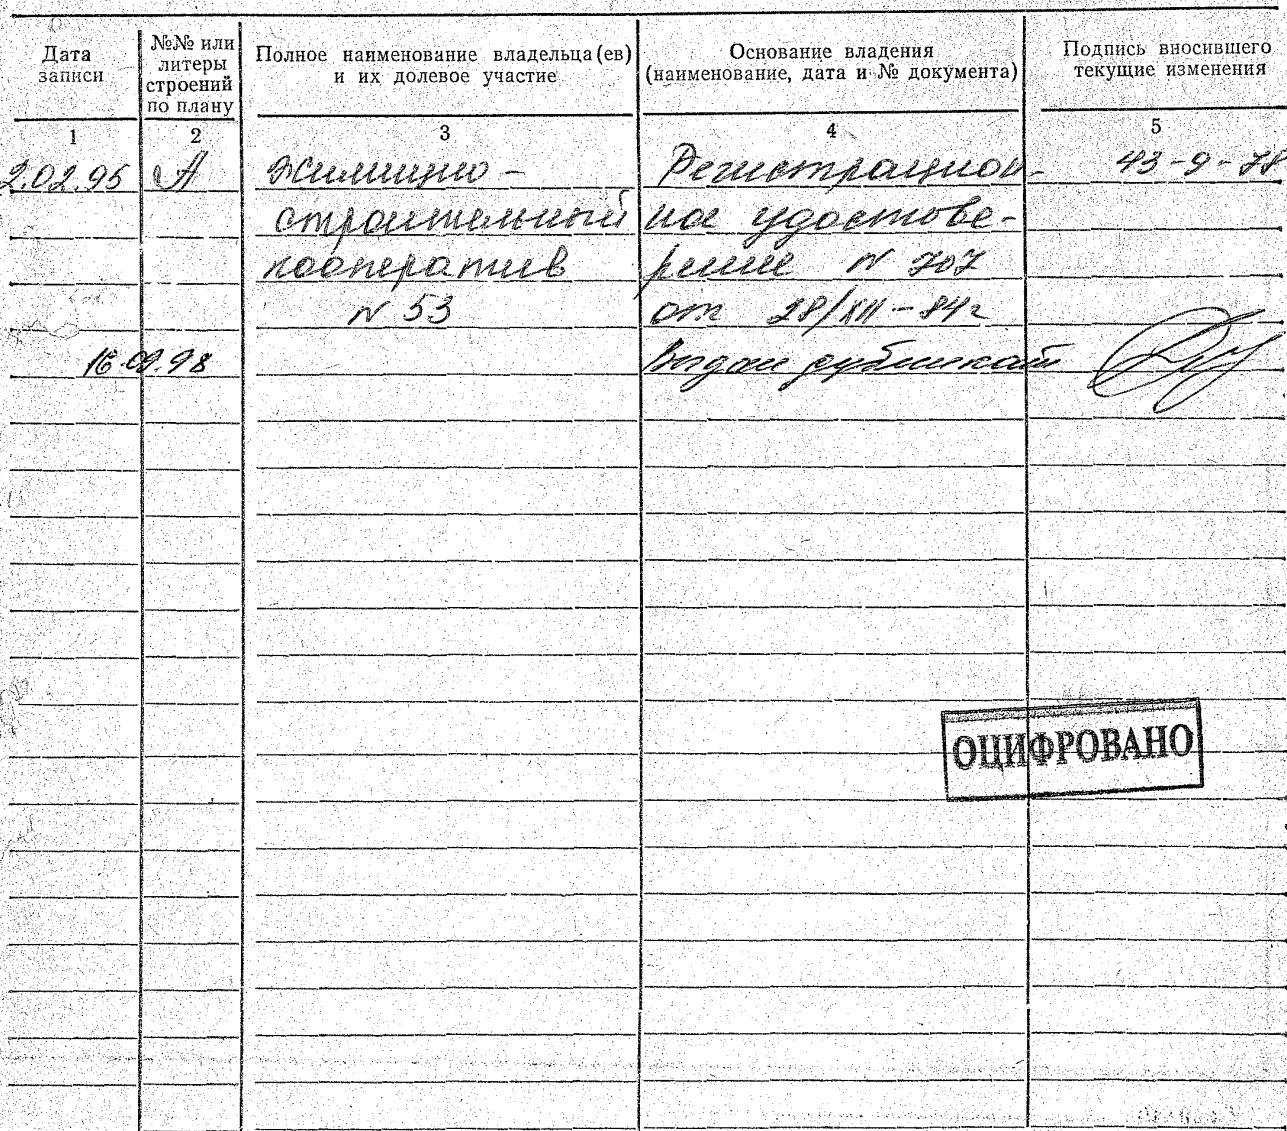 Дата записи
№№ или литеры строений по плану
Полное наименование владельца (ев) и их долевое участие
Основание владения (наименование, дата и № документа)
Подпись вносившего текущие изменения
1 2 3 4 5
2.02.95 А Жилищно- Регистрацион- 43-9-78
строительный ное удостове-
кооператив рение N 707
N 53 от 28/XII-84г
16.09.98 Выдан дубликат
ОЦИФРОВАНО